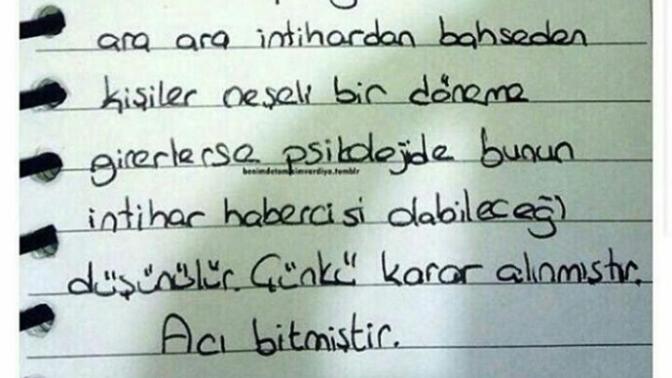 ara ara intihardan bahseden
kişiler neşeli bir döneme
girerlerse psikolojide bunun
benimdetambirismvardiya.tumblr
intihar habercisi olabileceği
düşünülür. Çünkü karar alınmıştır.
Acı bitmiştir.